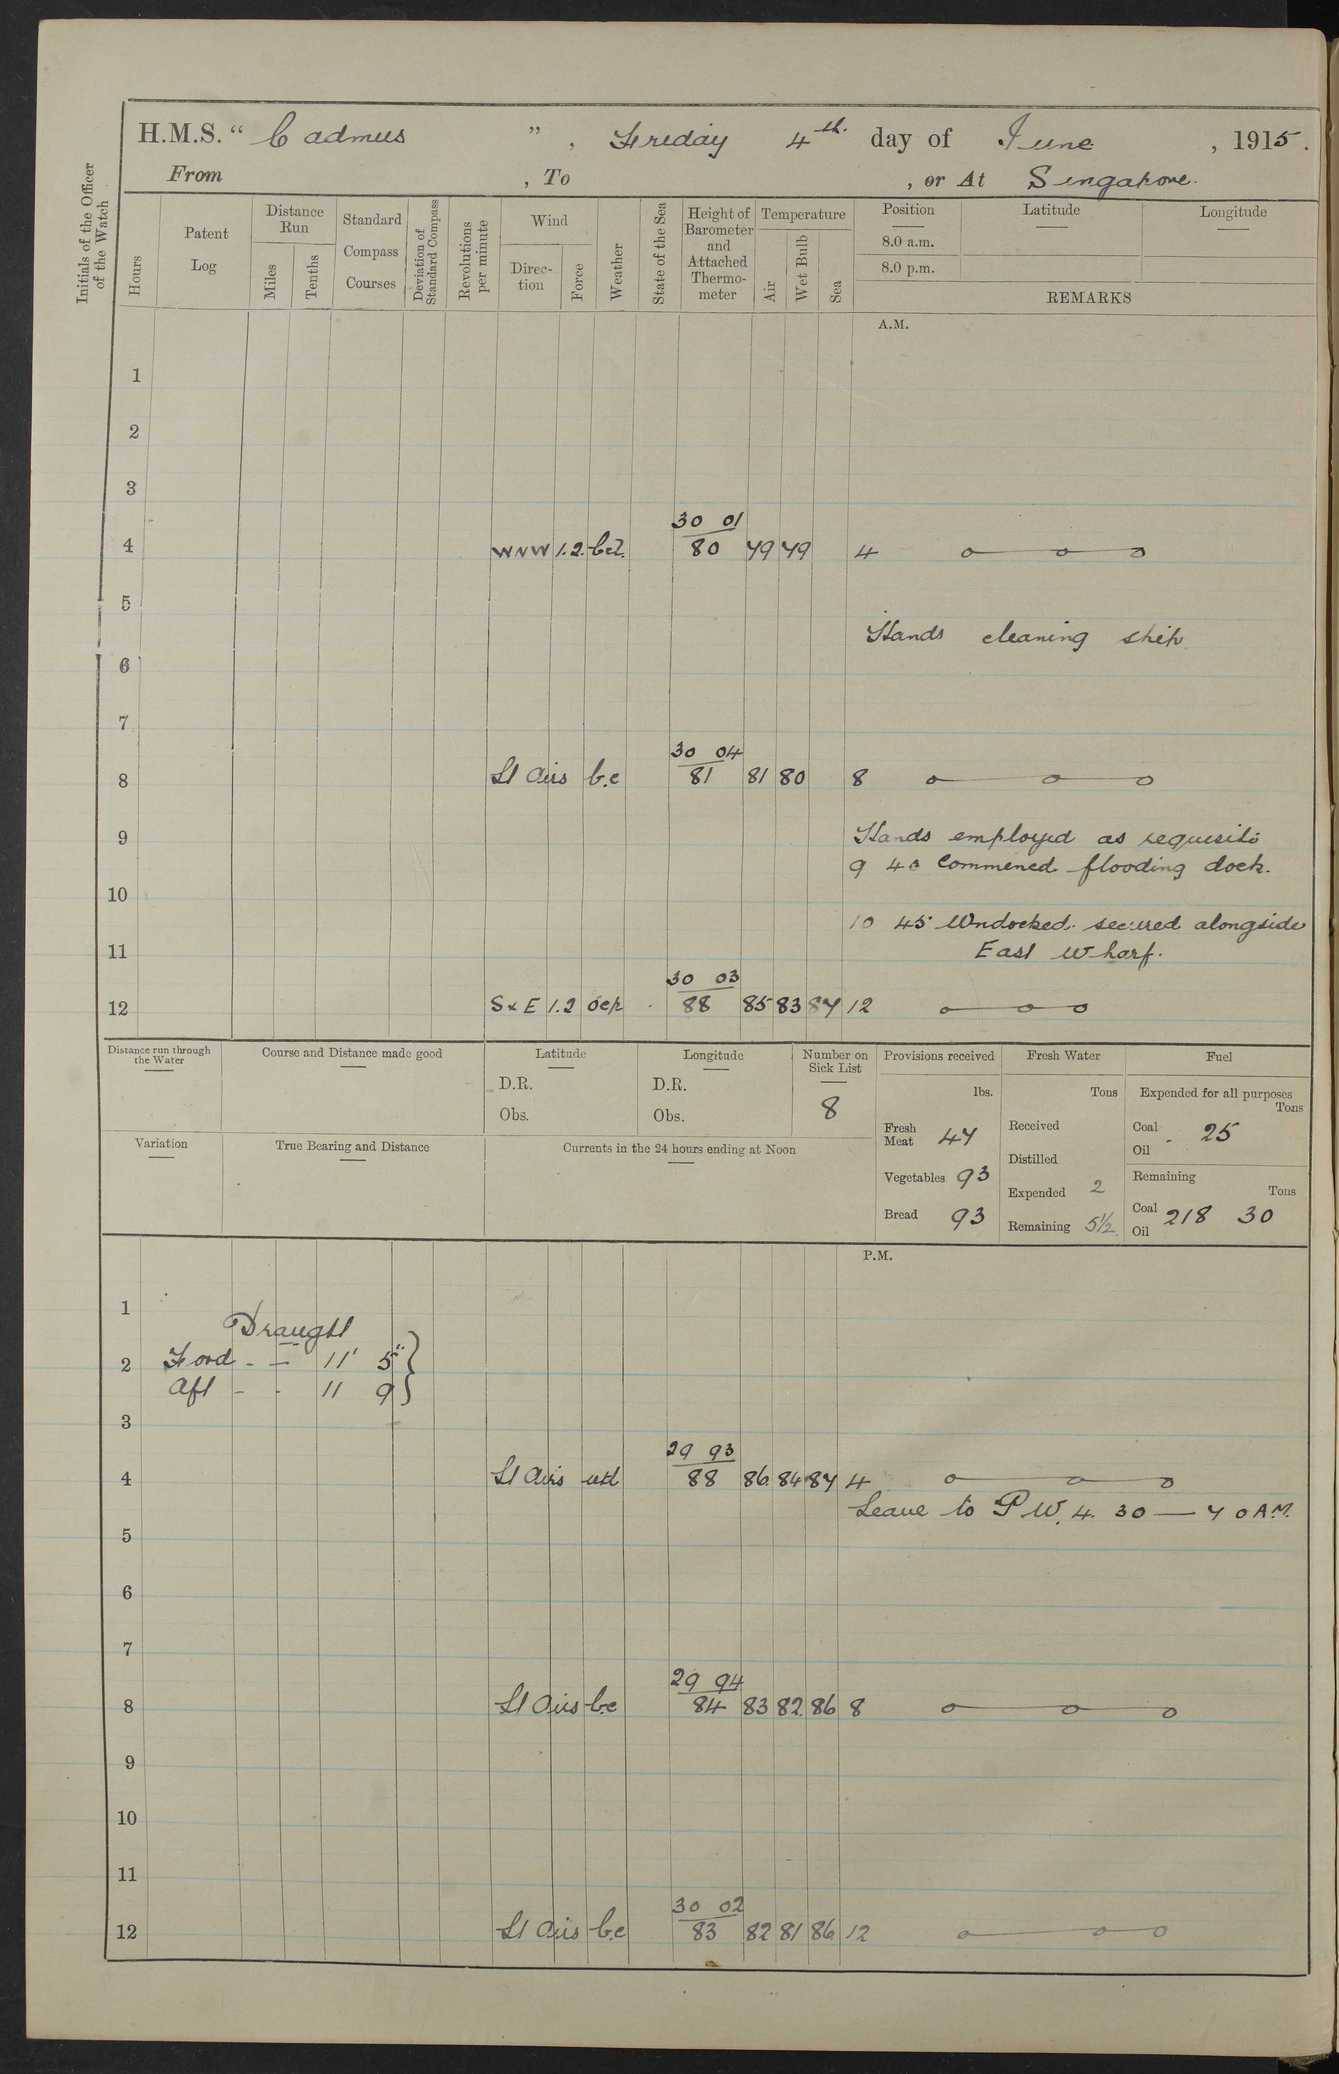 H.M.S. " Cadmus " , Friday 4th. day of June , 1915.
From , To , or At Singapore.
Initials of the Officer of the Watch
Hours
Patent Log
Distance Run
Miles
Tenths
Standard Compass Courses
Deviation of Standard Compass
Revolutions per minute
Wind
Direc-tion
Force
Weather
State of the Sea
Height of Barometer and Attached Thermo-meter
Temperature
Air
Wet Bulb
Sea
Position Latitude Longitude
8.0 a.m.
8.0 p.m.
REMARKS
A.M.
1
2
3
30 01
4 WNW 1.2. bcl. 80 79 79 4
5
Hands cleaning ship
6
7
30 04
8 Lt Airs b.c 81 81 80 8
9 Hands employed as requisite
9 40 Commened flooding dock.
10
10 45 Undocked. secured alongside
11 East Wharf.
30 03
12 SxE 1.2 ocp 88 85 83 87 12
Distance run through the Water
Course and Distance made good
Latitude
D.R.
Obs.
Longitude
D.R.
Obs.
Number on Sick List
8
Provisions received
lbs.
Fresh Meat 47
Vegetables 93
Bread 93
Fresh Water
Tons
Received
Distilled
Expended 2
Remaining 5½
Fuel
Expended for all purposes
Tons
Coal 25
Oil
Remaining
Tons
Coal 218 30
Oil
Variation
True Bearing and Distance
Currents in the 24 hours ending at Noon
P.M.
1
Draught
2 Ford - - 11' 5"
Aft - - 11 9
3
29 93
4 Lt Airs 88 86 84 87 4
Leave to P.W. 4. 30 — 7 0 A.M.
5
6
7
29 94
8 Lt Airs b.c 84 83 82 86 8
9
10
11
30 02
12 Lt Airs b.c 83 82 81 86 12